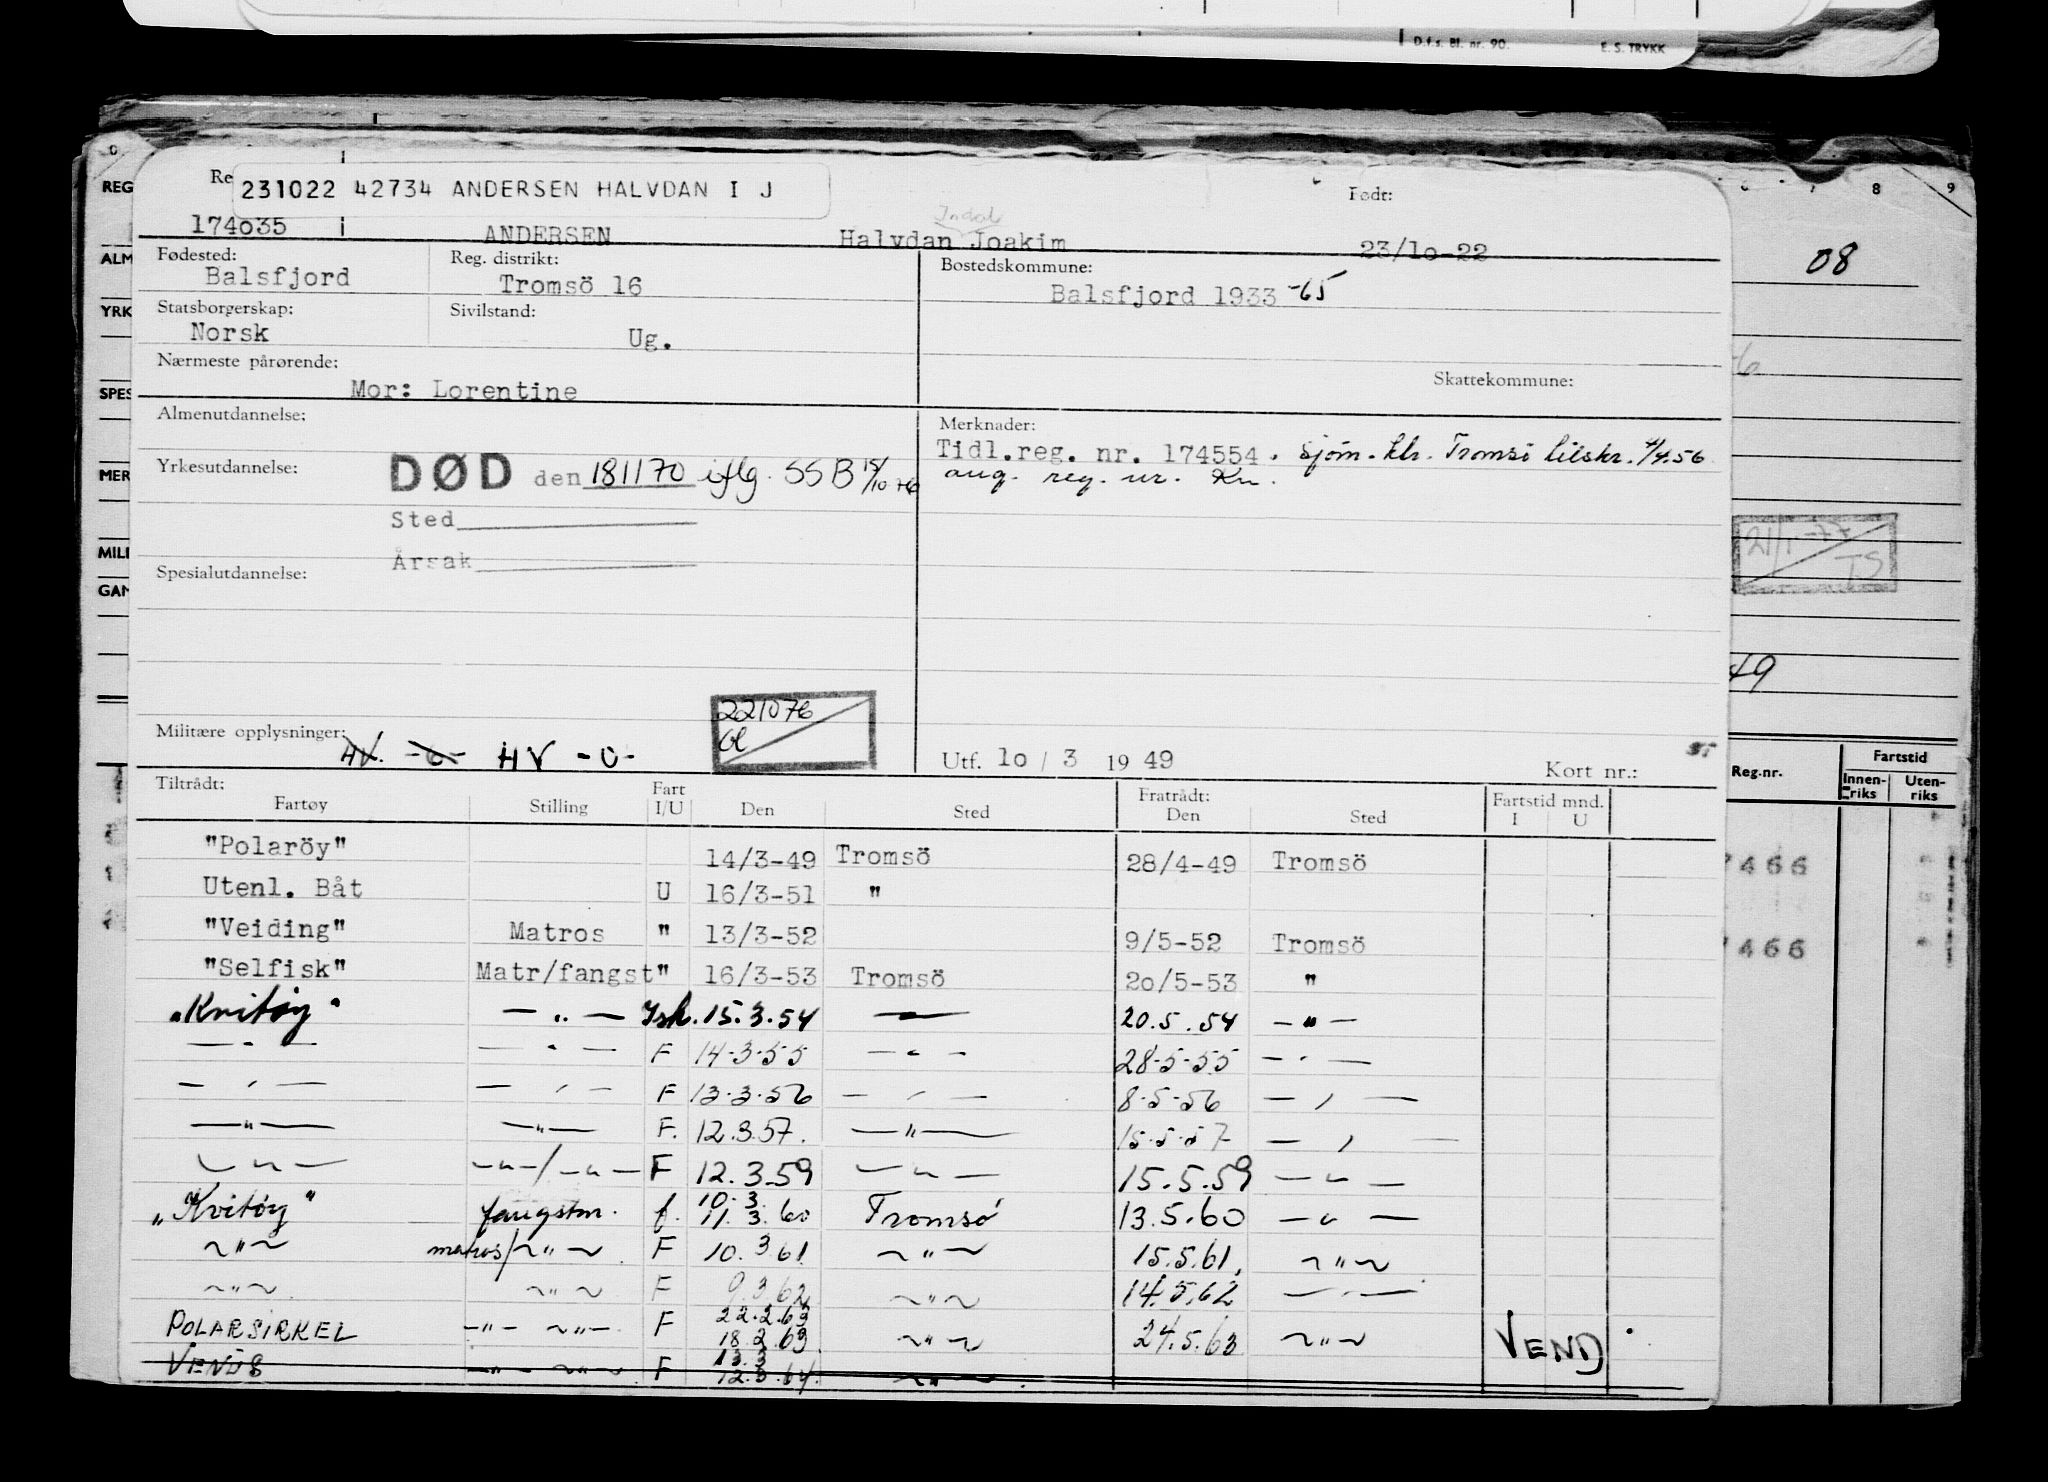 D.f.s. Bl. nr. 90. E. S. TRYKK
Re
231022 42734 ANDERSEN HALVDAN I J
Født:
174o35 ANDERSEN Halvdan Joakim 23/1o-22
Indal
Fødested: Balsfjord
Reg. distrikt: Tromsö 16
Bostedskommune: Balsfjord 1933 -65
Statsborgerskap: Norsk
Sivilstand: Ug.
Nærmeste pårørende: Mor: Lorentine
Skattekommune:
Almenutdannelse:
Merknader:
Tidl.reg. nr. 174554. Sjöm. ktr. Tromsö tilskr. 4/4.56
ang. reg. nr. Kn.
Yrkesutdannelse:
DØD den 181170 iflg. SSB 15/10 76
Sted
Årsak
Spesialutdannelse:
Militære opplysninger: HV. -o- HV -U-
221076
Ol
Utf. 1o / 3 19 49
Kort nr.:
Tiltrådt: Fartøy Stilling Fart I/U Den Sted Fratrådt: Den Sted Fartstid mnd. I U
"Polaröy" 14/3-49 Tromsö 28/4-49 Tromsö
Utenl. Båt U 16/3-51 "
"Veiding" Matros " 13/3-52 9/5-52 Tromsö
"Selfisk" Matr/fangst " 16/3-53 Tromsö 2o/5-53 "
"Kvitøy" — " — Ish. 15.3.54 — 20.5.54 — " —
— " — — " — F 14-3-55 — " — 28-5-55 — " —
— " — — " — F 13-3-56 — " — 8-5-56 — " —
— " — — " — F. 12.3.57. — " — 15-5-57 — " —
— " — — " — / — " — F 12.3.59 — " — 15.5.59 — " —
"Kvitøy" fangstm. f. 10.3. 11.3.60 Tromsø 13.5.60 — " —
~ " ~ matros/~ " ~ F 10.3.61 ~ " ~ 15.5.61. ~ " ~
~ " ~ ~ " ~ F 9.3.62 ~ " ~ 14.5.62 — " —
POLARSIRKEL — " — ~ " — F 22.2.63 18.2.63 ~ " ~ 24.5.63 ~ " ~
VENUS — " — ~ " ~ F 13.3 12.3.64. ~ " ~
VEND
REG
ALM
YRK
SPES
MER
MILI
GAN
7 8 9
08
21/1-77
TS
49
Reg.nr. Fartstid
Innen-riks Uten-riks
7466
7466